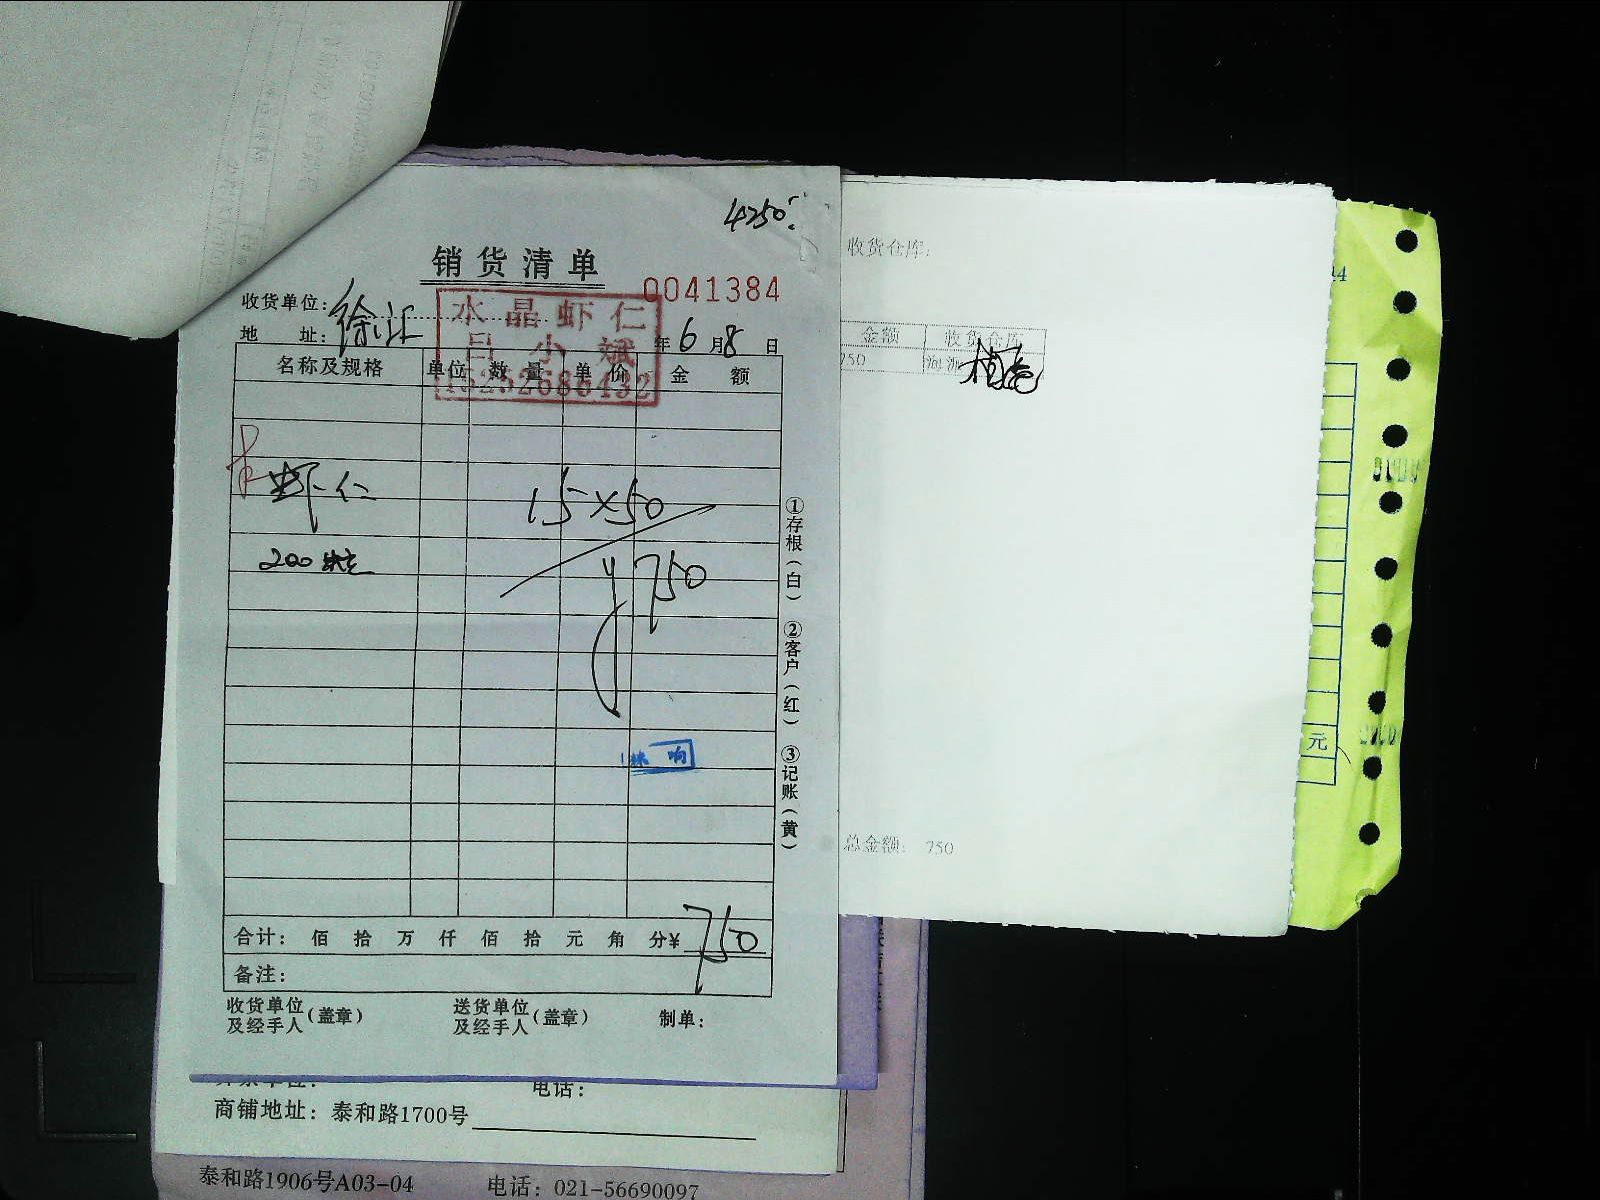 4250
销货清单
0041384
收货单位：徐汇
地 址：
水晶虾仁
吕小斌
15252686432
年 6 月 8 日
名称及规格 单位 数量 单价 金额
虾仁 15×50
200 ¥750
①存根（白） ②客户（红） ③记账（黄）
合计： 佰 拾 万 仟 佰 拾 元 角 分 ¥ 750
备注：
收货单位及经手人（盖章） 送货单位及经手人（盖章） 制单：
电话：
商铺地址：泰和路1700号
泰和路1906号A03-04 电话：021-56690097
收货仓库：
金额 收货仓库
750
总金额： 750
元